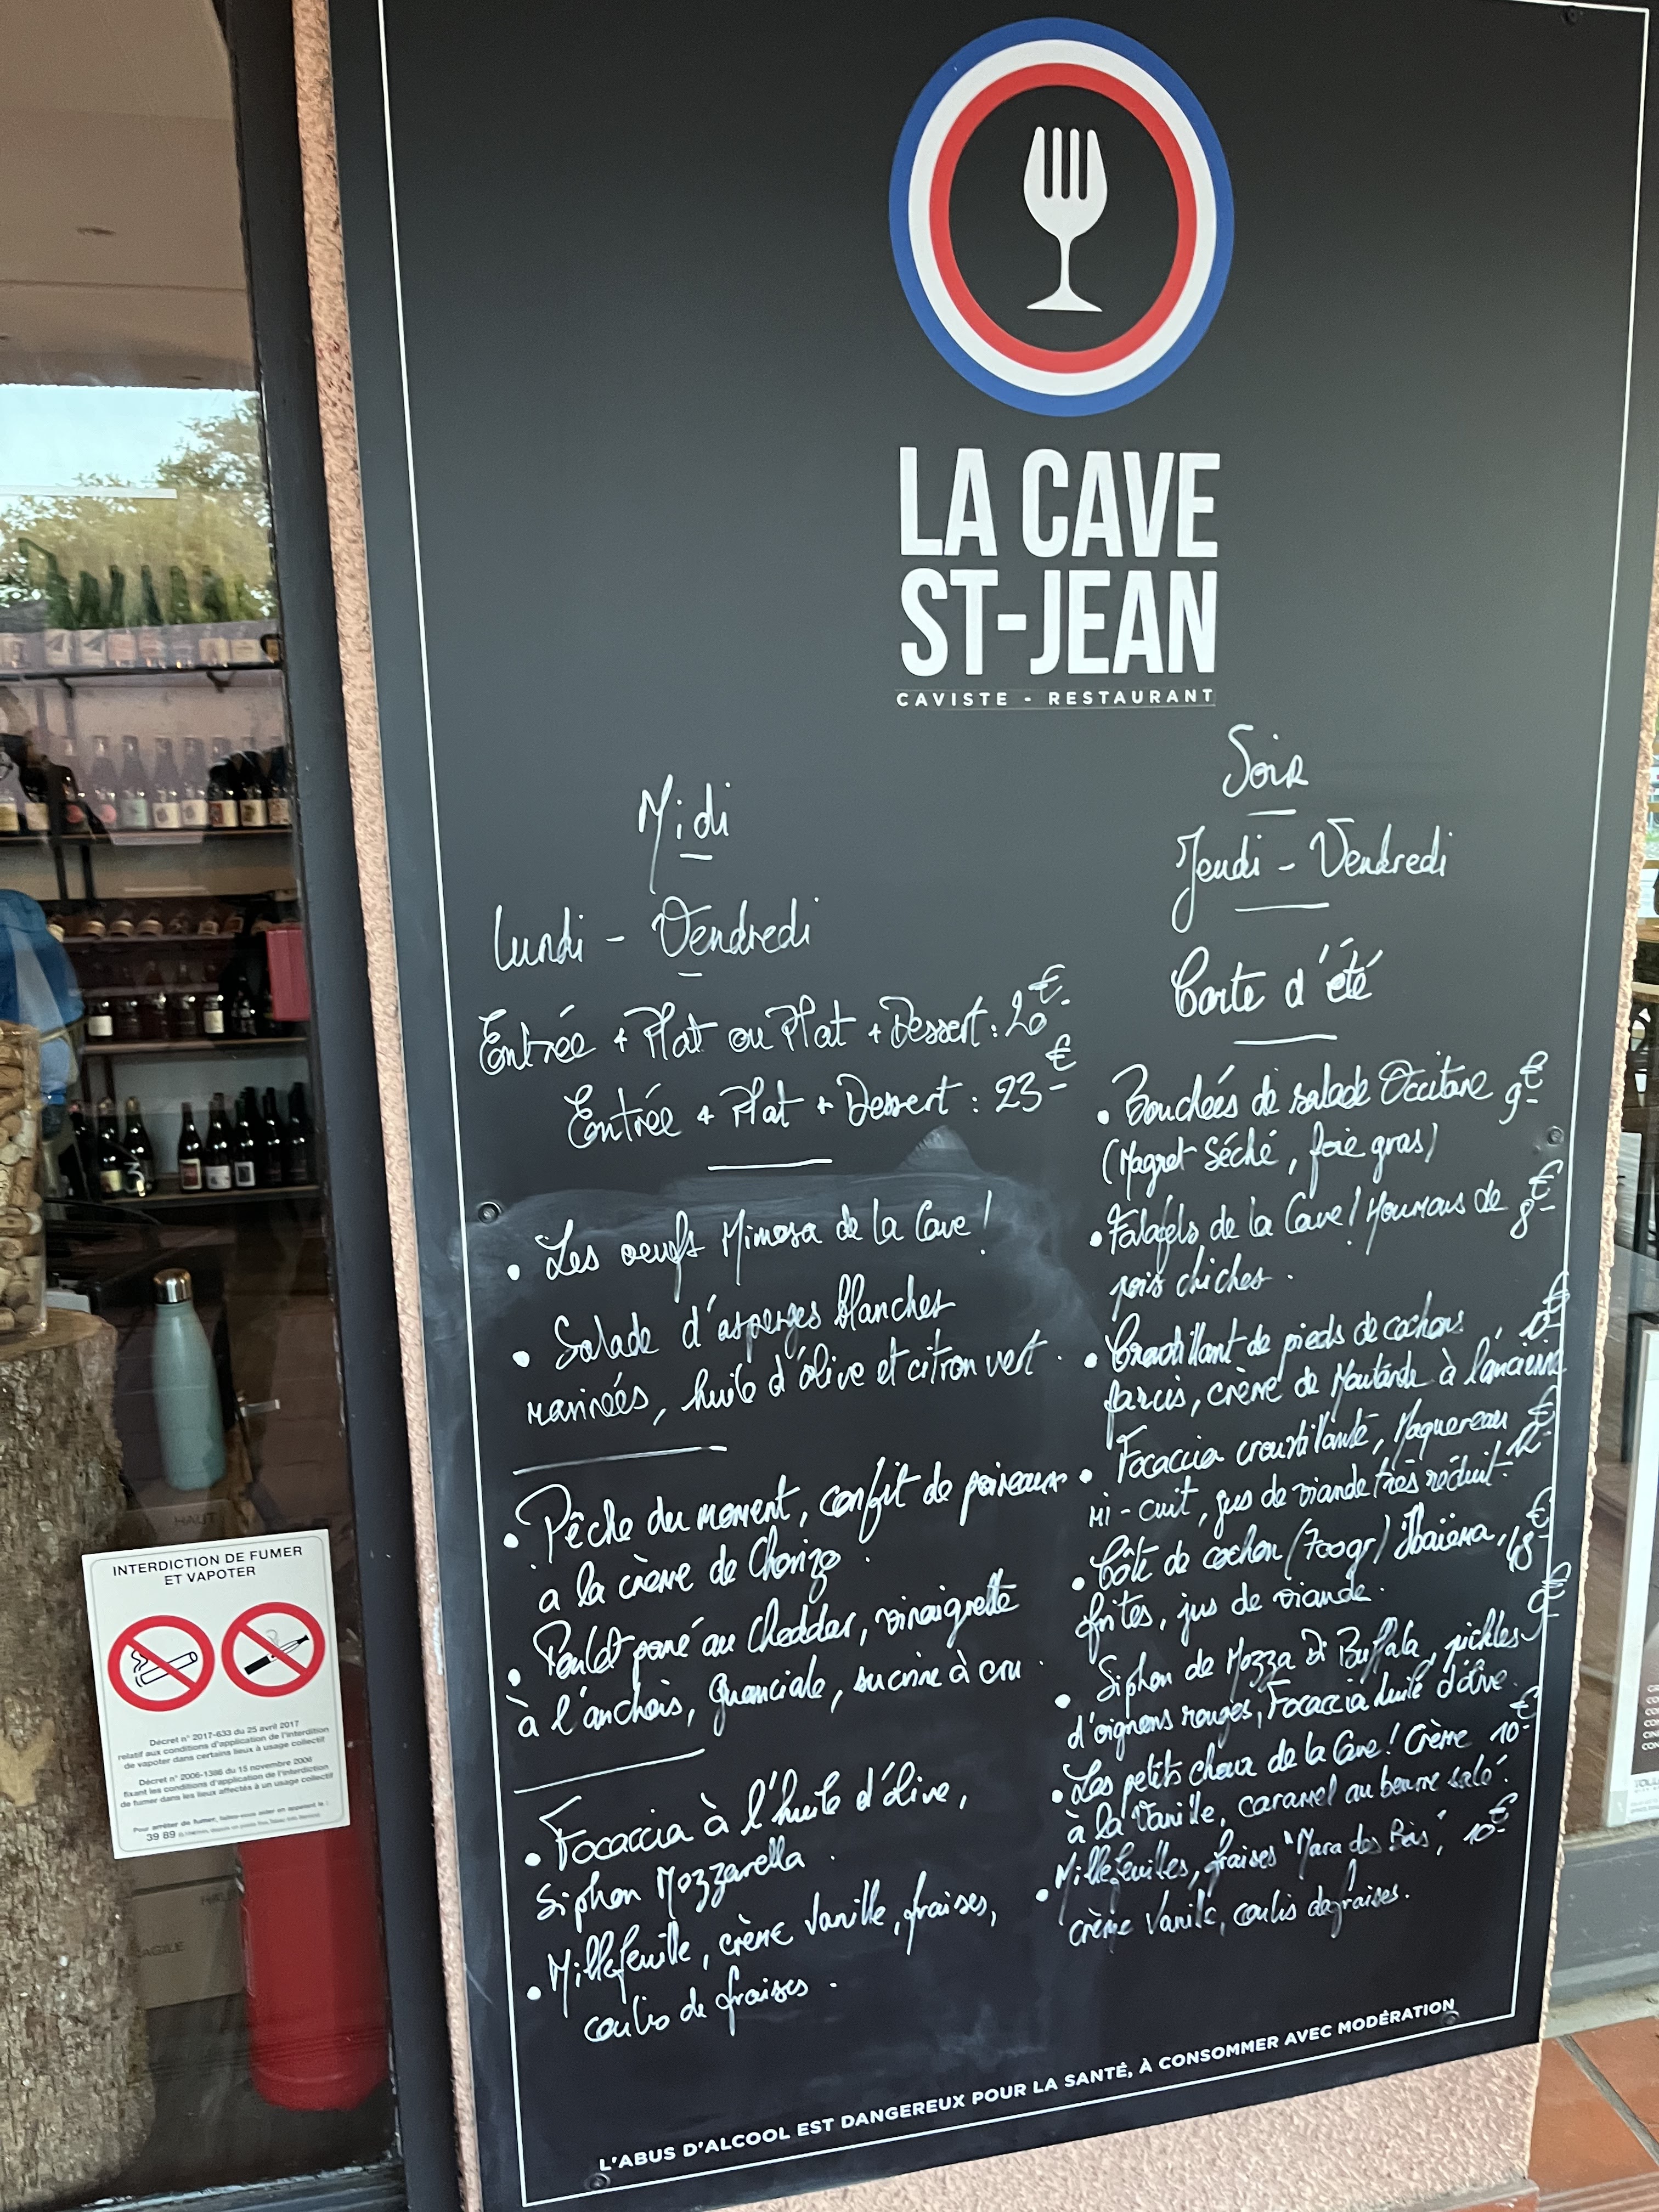 LA CAVE
ST-JEAN
CAVISTE - RESTAURANT
Midi
Lundi - Vendredi
Entrée + Plat ou Plat + Dessert : 20€
Entrée + Plat + Dessert : 23€
• Les oeufs Mimosa de la Cave !
• Salade d'asperges blanches
marinées, huile d'olive et citron vert.
• Pêche du moment, confit de poireaux
a la crème de Chorizo.
• Poulet pané au Cheddar, vinaigrette
à l'anchois, guanciale, sucrine à cru.
• Focaccia à l'huile d'olive,
Siphon Mozzarella.
• Millefeuille, crème Vanille, fraises,
coulis de fraises.
Soir
Jeudi - Vendredi
Carte d'été
• Bouchées de salade Occitane 9€
(Magret Séché, foie gras)
• Falafels de la Cave ! Houmous de 8€
pois chiches.
• Croustillant de pieds de cochons
farcis, crème de Moutarde à l'ancienne
• Focaccia croustillante, Maquereau 12€
mi-cuit, jus de viande très réduit.
• Côte de cochon (700gr) Ibaïona,
frites, jus de viande.
• Siphon de Mozza Di Buffala, pickles 9€
d'oignons rouges, Focaccia huile d'olive.
• Les petits choux de la Cave ! Crème 10€
à la Vanille, caramel au beurre salé.
• Millefeuilles, fraises "Mara des Bois", 10€
crème Vanille, coulis de fraises.
L'ABUS D'ALCOOL EST DANGEREUX POUR LA SANTÉ, À CONSOMMER AVEC MODÉRATION
HAUT
INTERDICTION DE FUMER
ET VAPOTER
Décret n° 2017-633 du 25 avril 2017
relatif aux conditions d'application de l'interdiction
de vapoter dans certains lieux à usage collectif
Décret n° 2006-1386 du 15 novembre 2006
fixant les conditions d'application de l'interdiction
de fumer dans les lieux affectés à un usage collectif
Pour arrêter de fumer, faites-vous aider en appelant le :
39 89